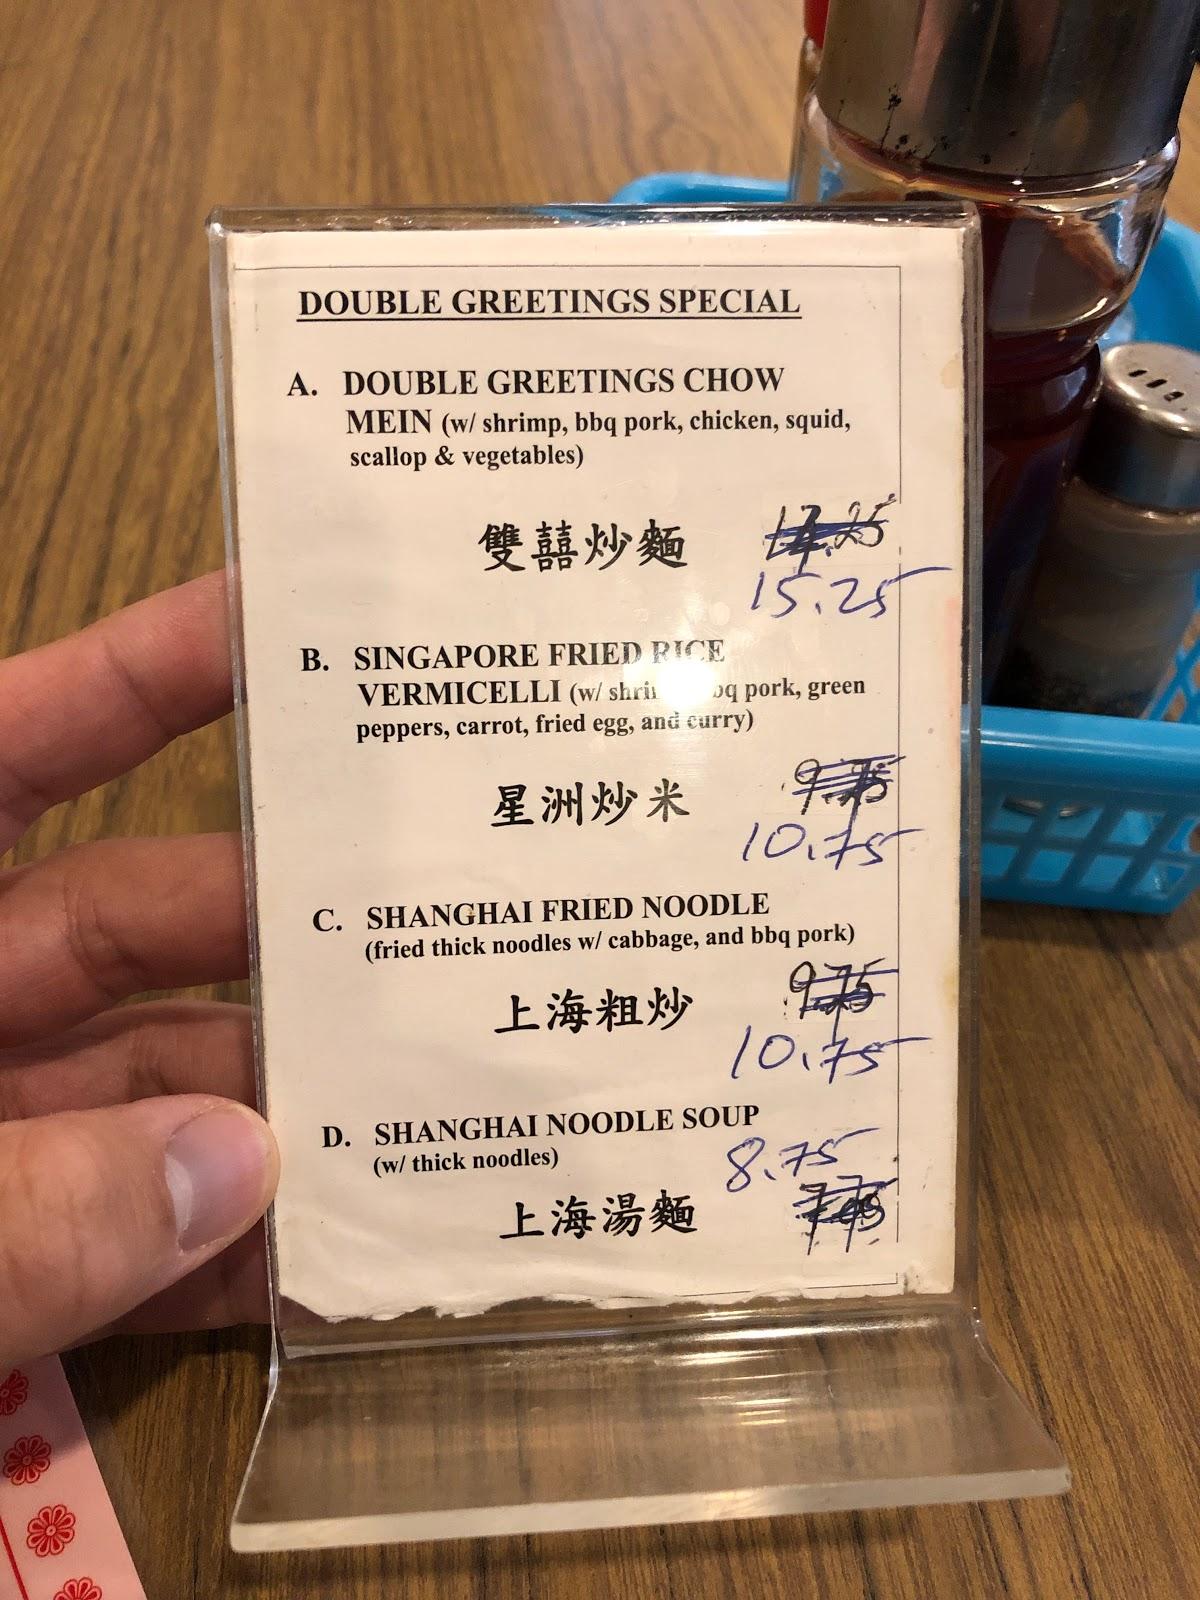 DOUBLE GREETINGS SPECIAL
A. DOUBLE GREETINGS CHOW
MEIN (w/ shrimp, bbq pork, chicken, squid,
scallop & vegetables)
雙囍炒麵
15.25
B. SINGAPORE FRIED RICE
VERMICELLI (w/ pork, green
peppers, carrot, fried egg, and curry)
星洲炒米
9.75
10.75
C. SHANGHAI FRIED NOODLE
(fried thick noodles w/ cabbage, and bbq pork)
9.75
上海粗炒
10.75
D. SHANGHAI NOODLE SOUP
(w/ thick noodles)
8.75
上海湯麵